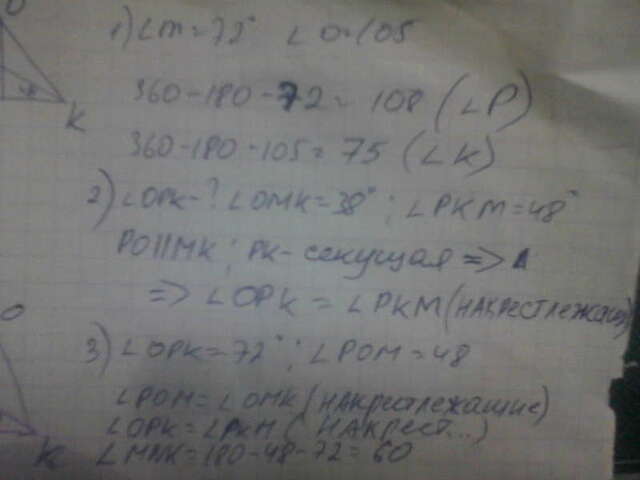 O
1) ∠M = 72° ∠O = 105
360-180-72 = 108 (∠P)
K
360-180-105 = 75 (∠K)
2) ∠OPK-? ∠OMK = 38°; ∠PKM = 48°
PO||MK; PK- секущая =>
=> ∠OPK = ∠PKM (НАКРЕСТЛЕЖАЩИЕ)
O
3) ∠OPK = 72°; ∠POM = 48
∠POM = ∠OMK (НАКРЕСТЛЕЖАЩИЕ)
∠OPK = ∠PKM (НАКРЕСТ...)
K
= 180-48-72 = 60